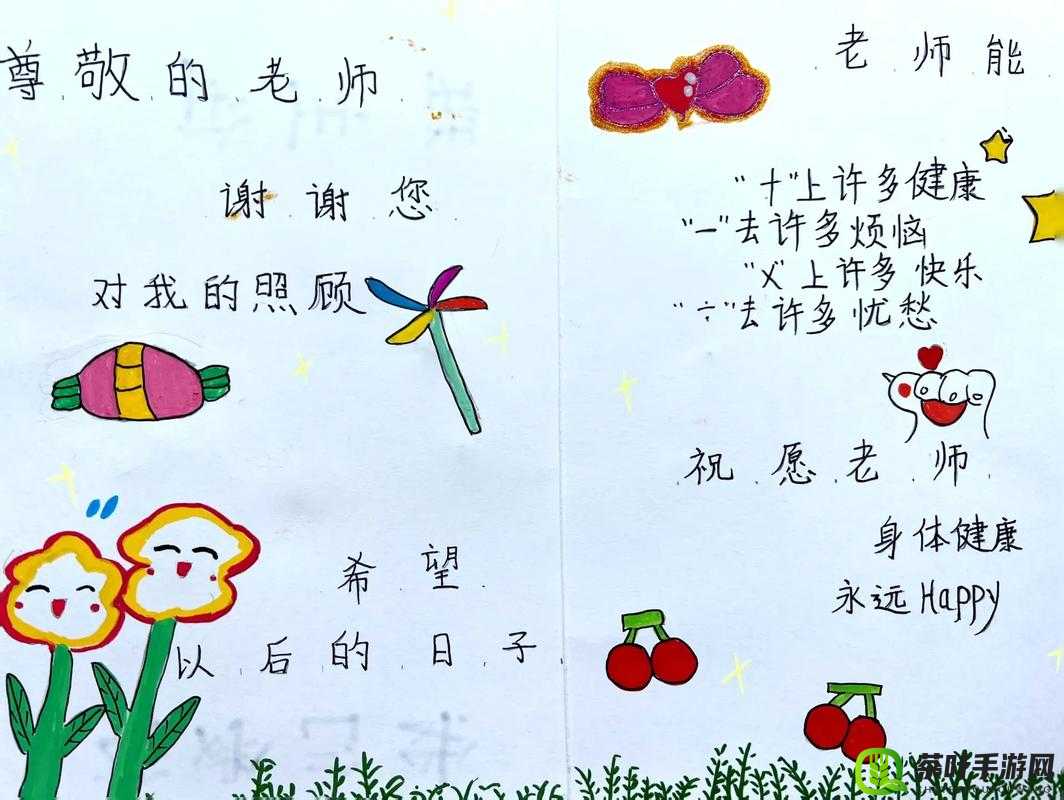 尊敬的老师
谢谢您
对我的照顾
希望
以后的日子
老师能
"十"上许多健康
"一"去许多烦恼
"乂"上许多快乐
"÷"去许多忧愁
祝愿老师
身体健康
永远Happy
茶叶手游网